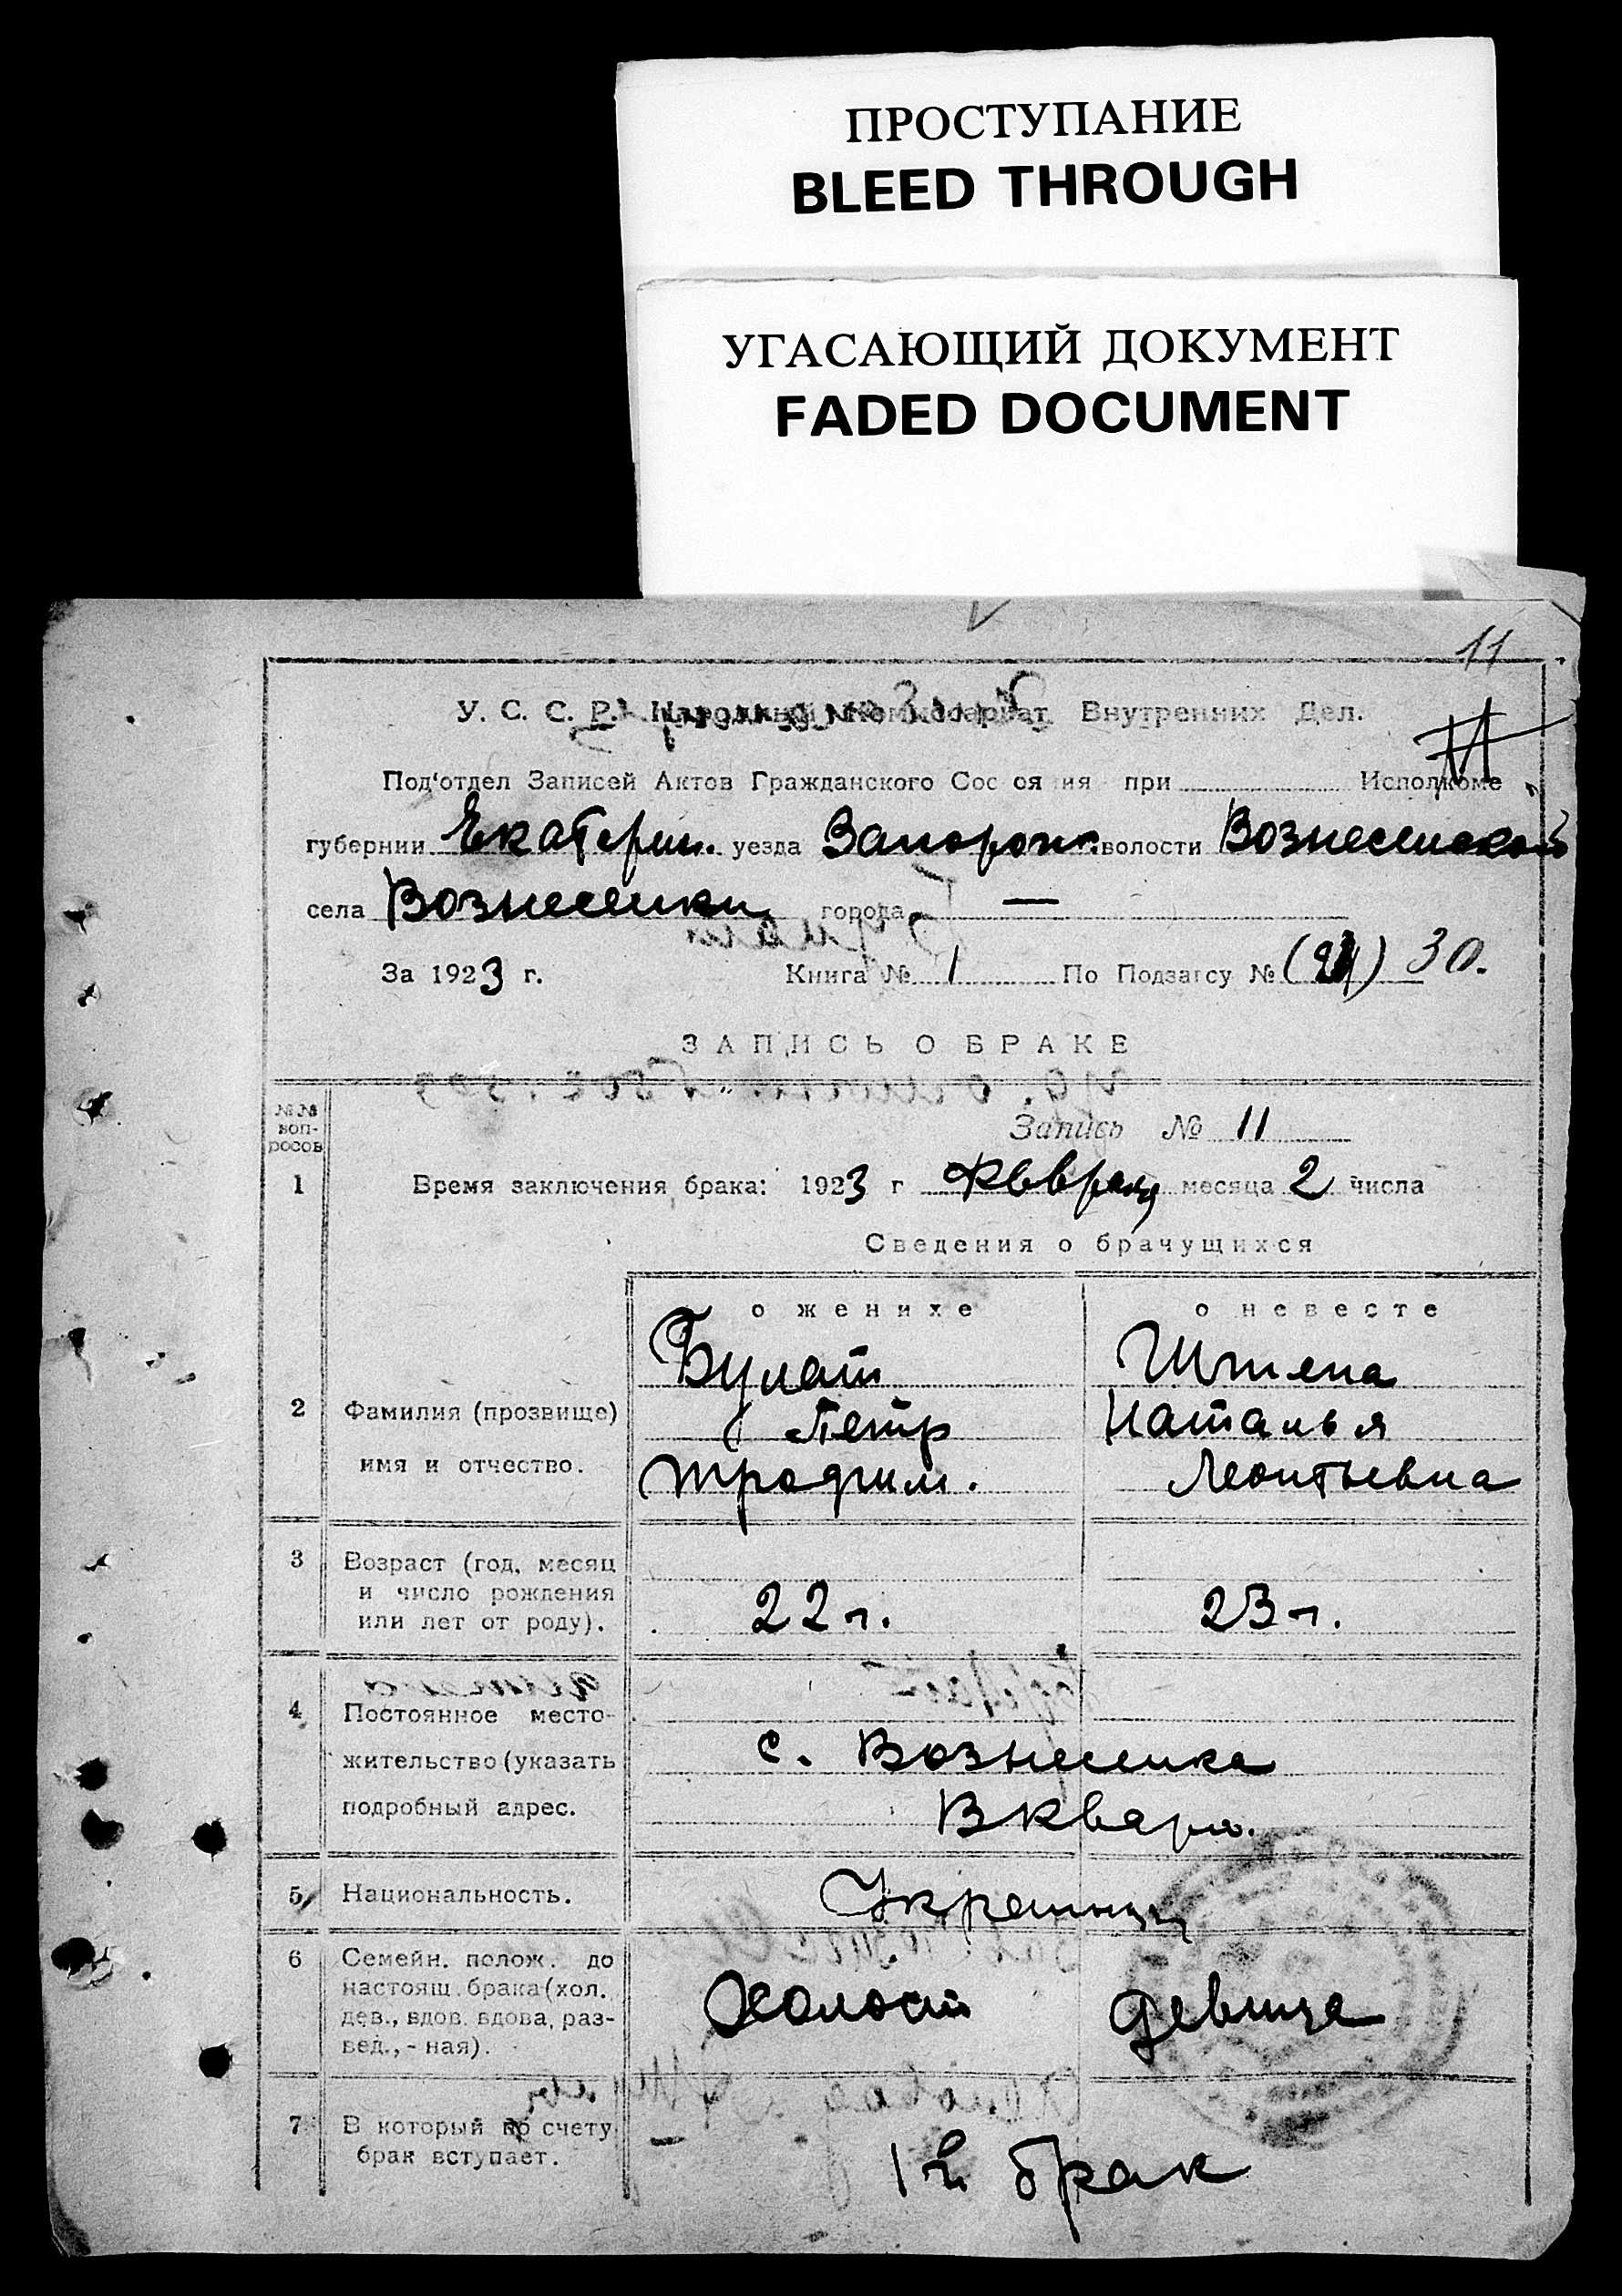 ПРОСТУПАНИЕ
BLEED THROUGH
УГАСАЮЩИЙ ДОКУМЕНТ
FADED DOCUMENT
11
У. С. С. Р. Народный Комиссариат Внутренних Дел.
Под'отдел Записей Актов Гражданского Сос оя ия при Исполкоме
губернии Екатерин. уезда Запорож. волости Вознесенской
села Вознесенки города —
За 1923 г. Книга № 1 По Подзагсу № 30.
ЗАПИСЬ О БРАКЕ
№№ воп-росов
Запись № 11
1 Время заключения брака: 1923 г Февраля месяца 2 числа
Сведения о брачущихся
о женихе о невесте
Булат Штепа
2 Фамилия (прозвище) Петр Наталья
имя и отчество. Трофим. Леонтьевна
3 Возраст (год, месяц
и число рождения
или лет от роду). 22 г. 23 г.
4 Постоянное место-
жительство (указать с. Вознесенка
подробный адрес. В кварт.
5 Национальность. Украинцы
6 Семейн. полож. до
настоящ. брака (хол.
дев., вдов. вдова, раз- Холост девица
вед., - ная).
7 В который по счету
брак вступает. 1й брак